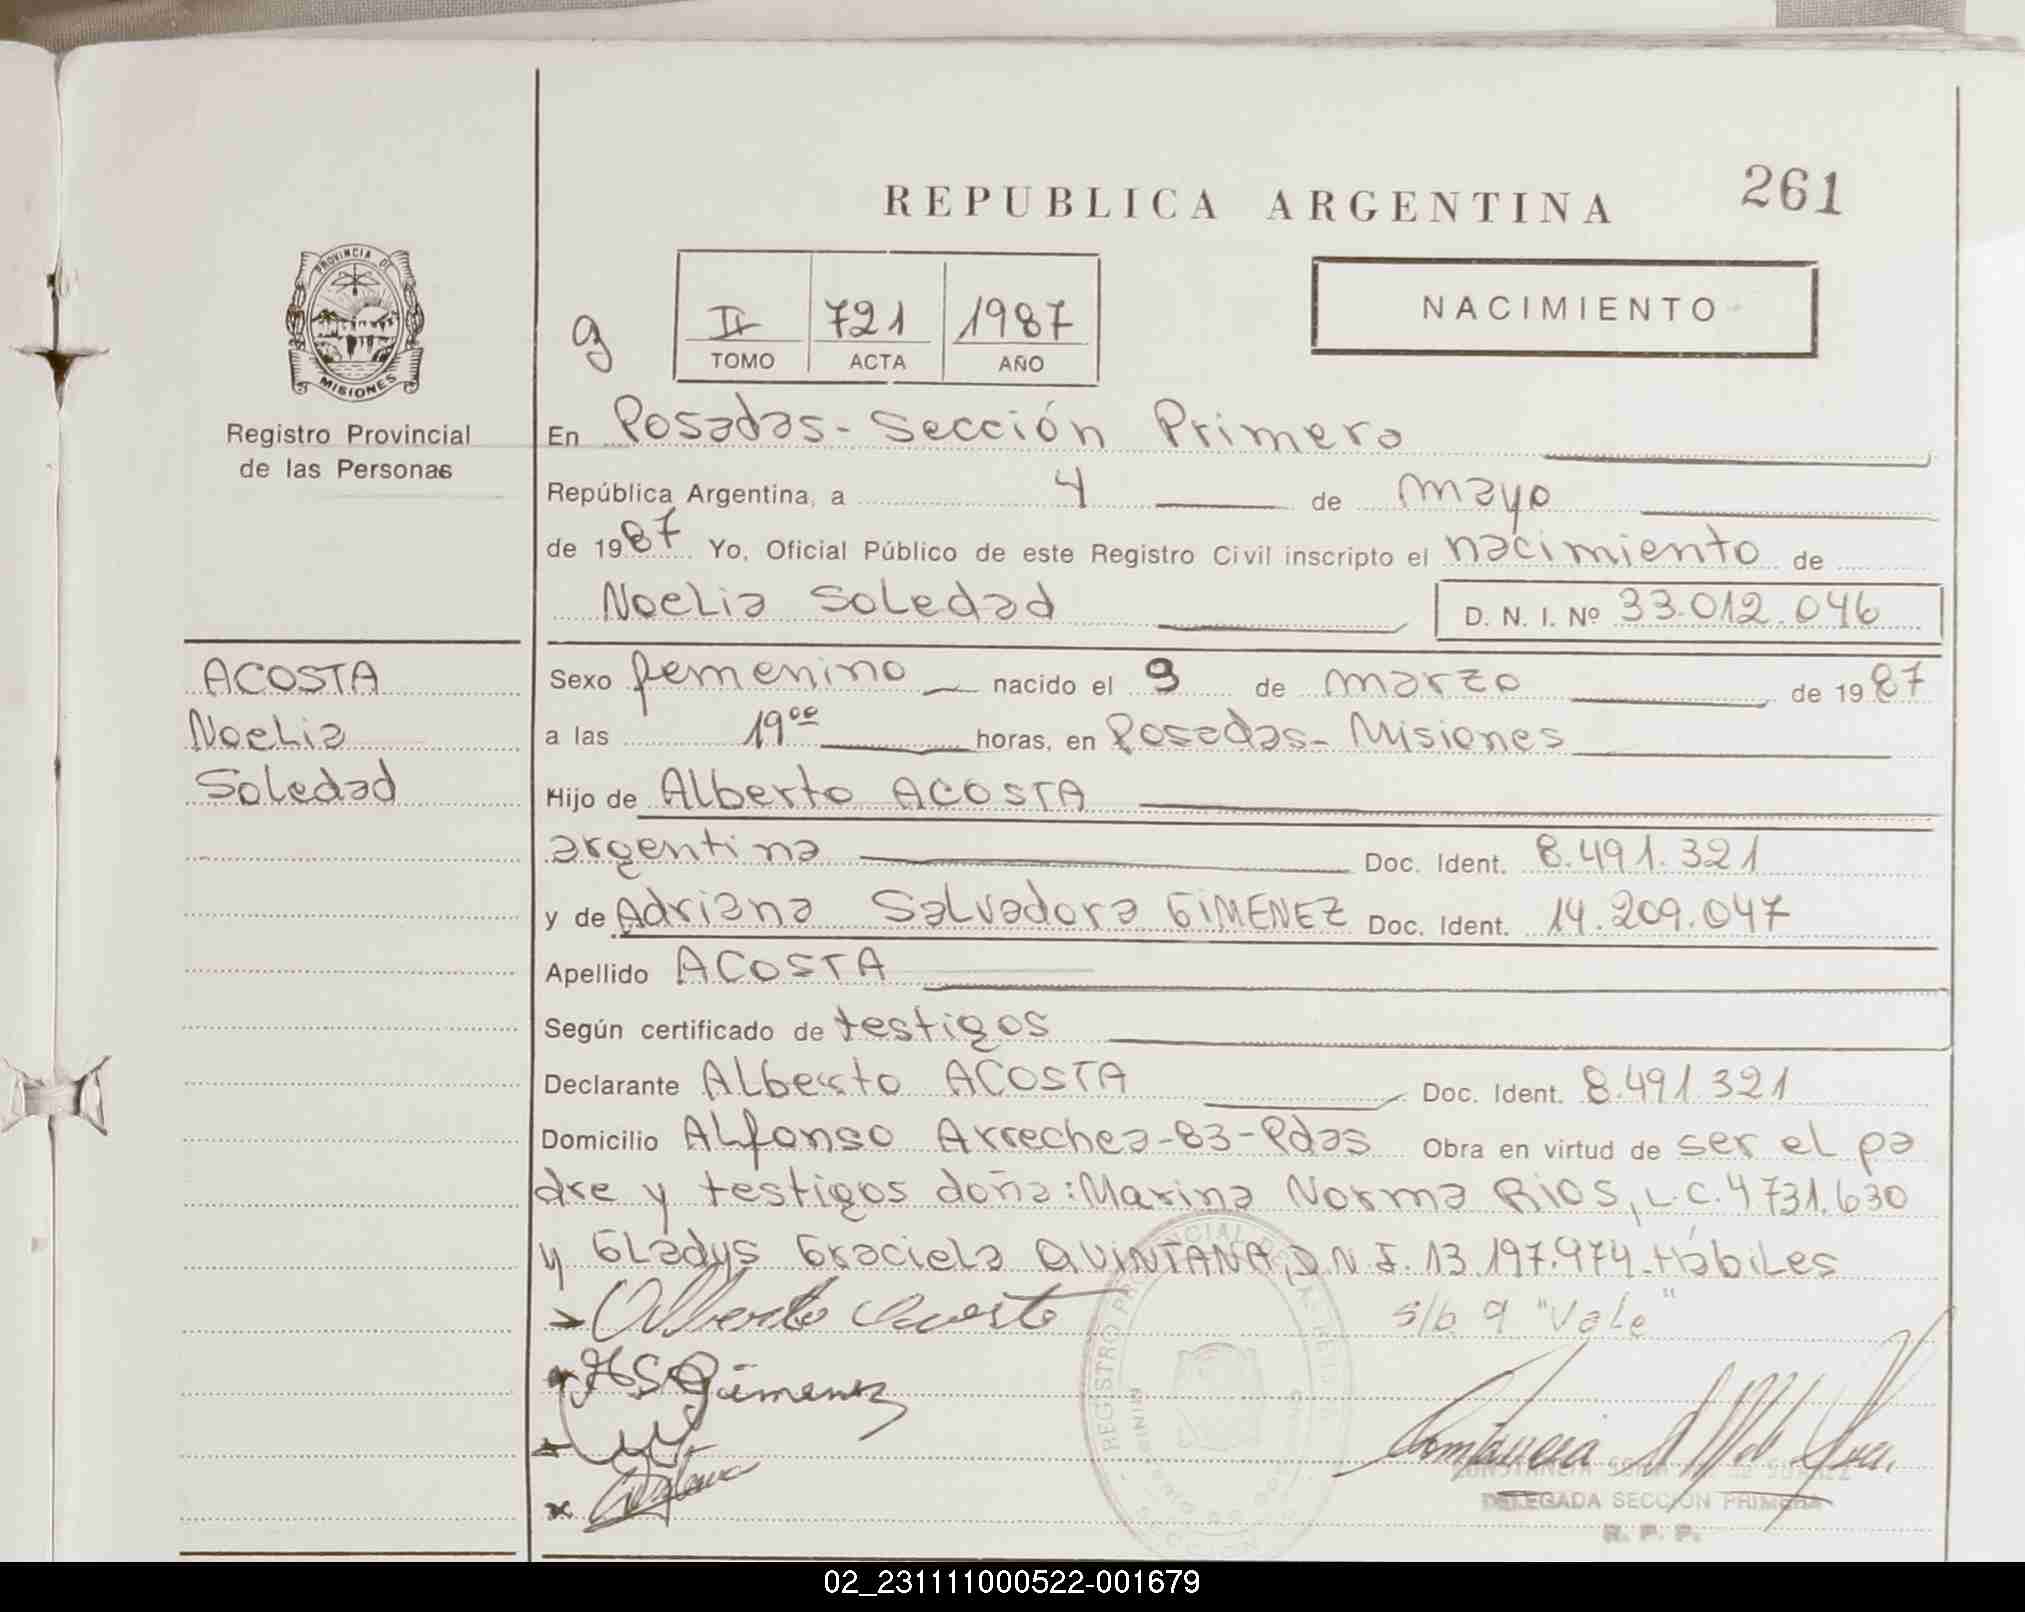 REPUBLICA ARGENTINA
261
PROVINCIA DE
MISIONES
Registro Provincial
de las Personas
g
II 721 1987
TOMO ACTA AÑO
NACIMIENTO
En Posadas - Sección Primera
República Argentina, a 4 de mayo
de 1987 Yo, Oficial Público de este Registro Civil inscripto el nacimiento de
Noelia Soledad D. N. I. Nº 33.012.046
ACOSTA
Noelia
Soledad
Sexo femenino nacido el 9 de marzo de 1987
a las 19ºº horas, en Posadas - Misiones
Hijo de Alberto ACOSTA
argentina Doc. Ident. 8.491.321
y de Adriana Salvadora GIMENEZ Doc. Ident. 14.209.047
Apellido ACOSTA
Según certificado de testigos
Declarante Alberto ACOSTA Doc. Ident. 8.491.321
Domicilio Alfonso Arrechea - 83 - Pdas Obra en virtud de ser el pa
dre y testigos doña: Marina Norma RIOS, L.C. 4731.630
y Gladys Graciela QUINTANA, D.N.I. 13.197.974. Hábiles
Alberto Acosta s/b 9 "Vale"
ASGimenez
DELEGADA SECCION PRIMERA
R. P. P.
02_231111000522-001679